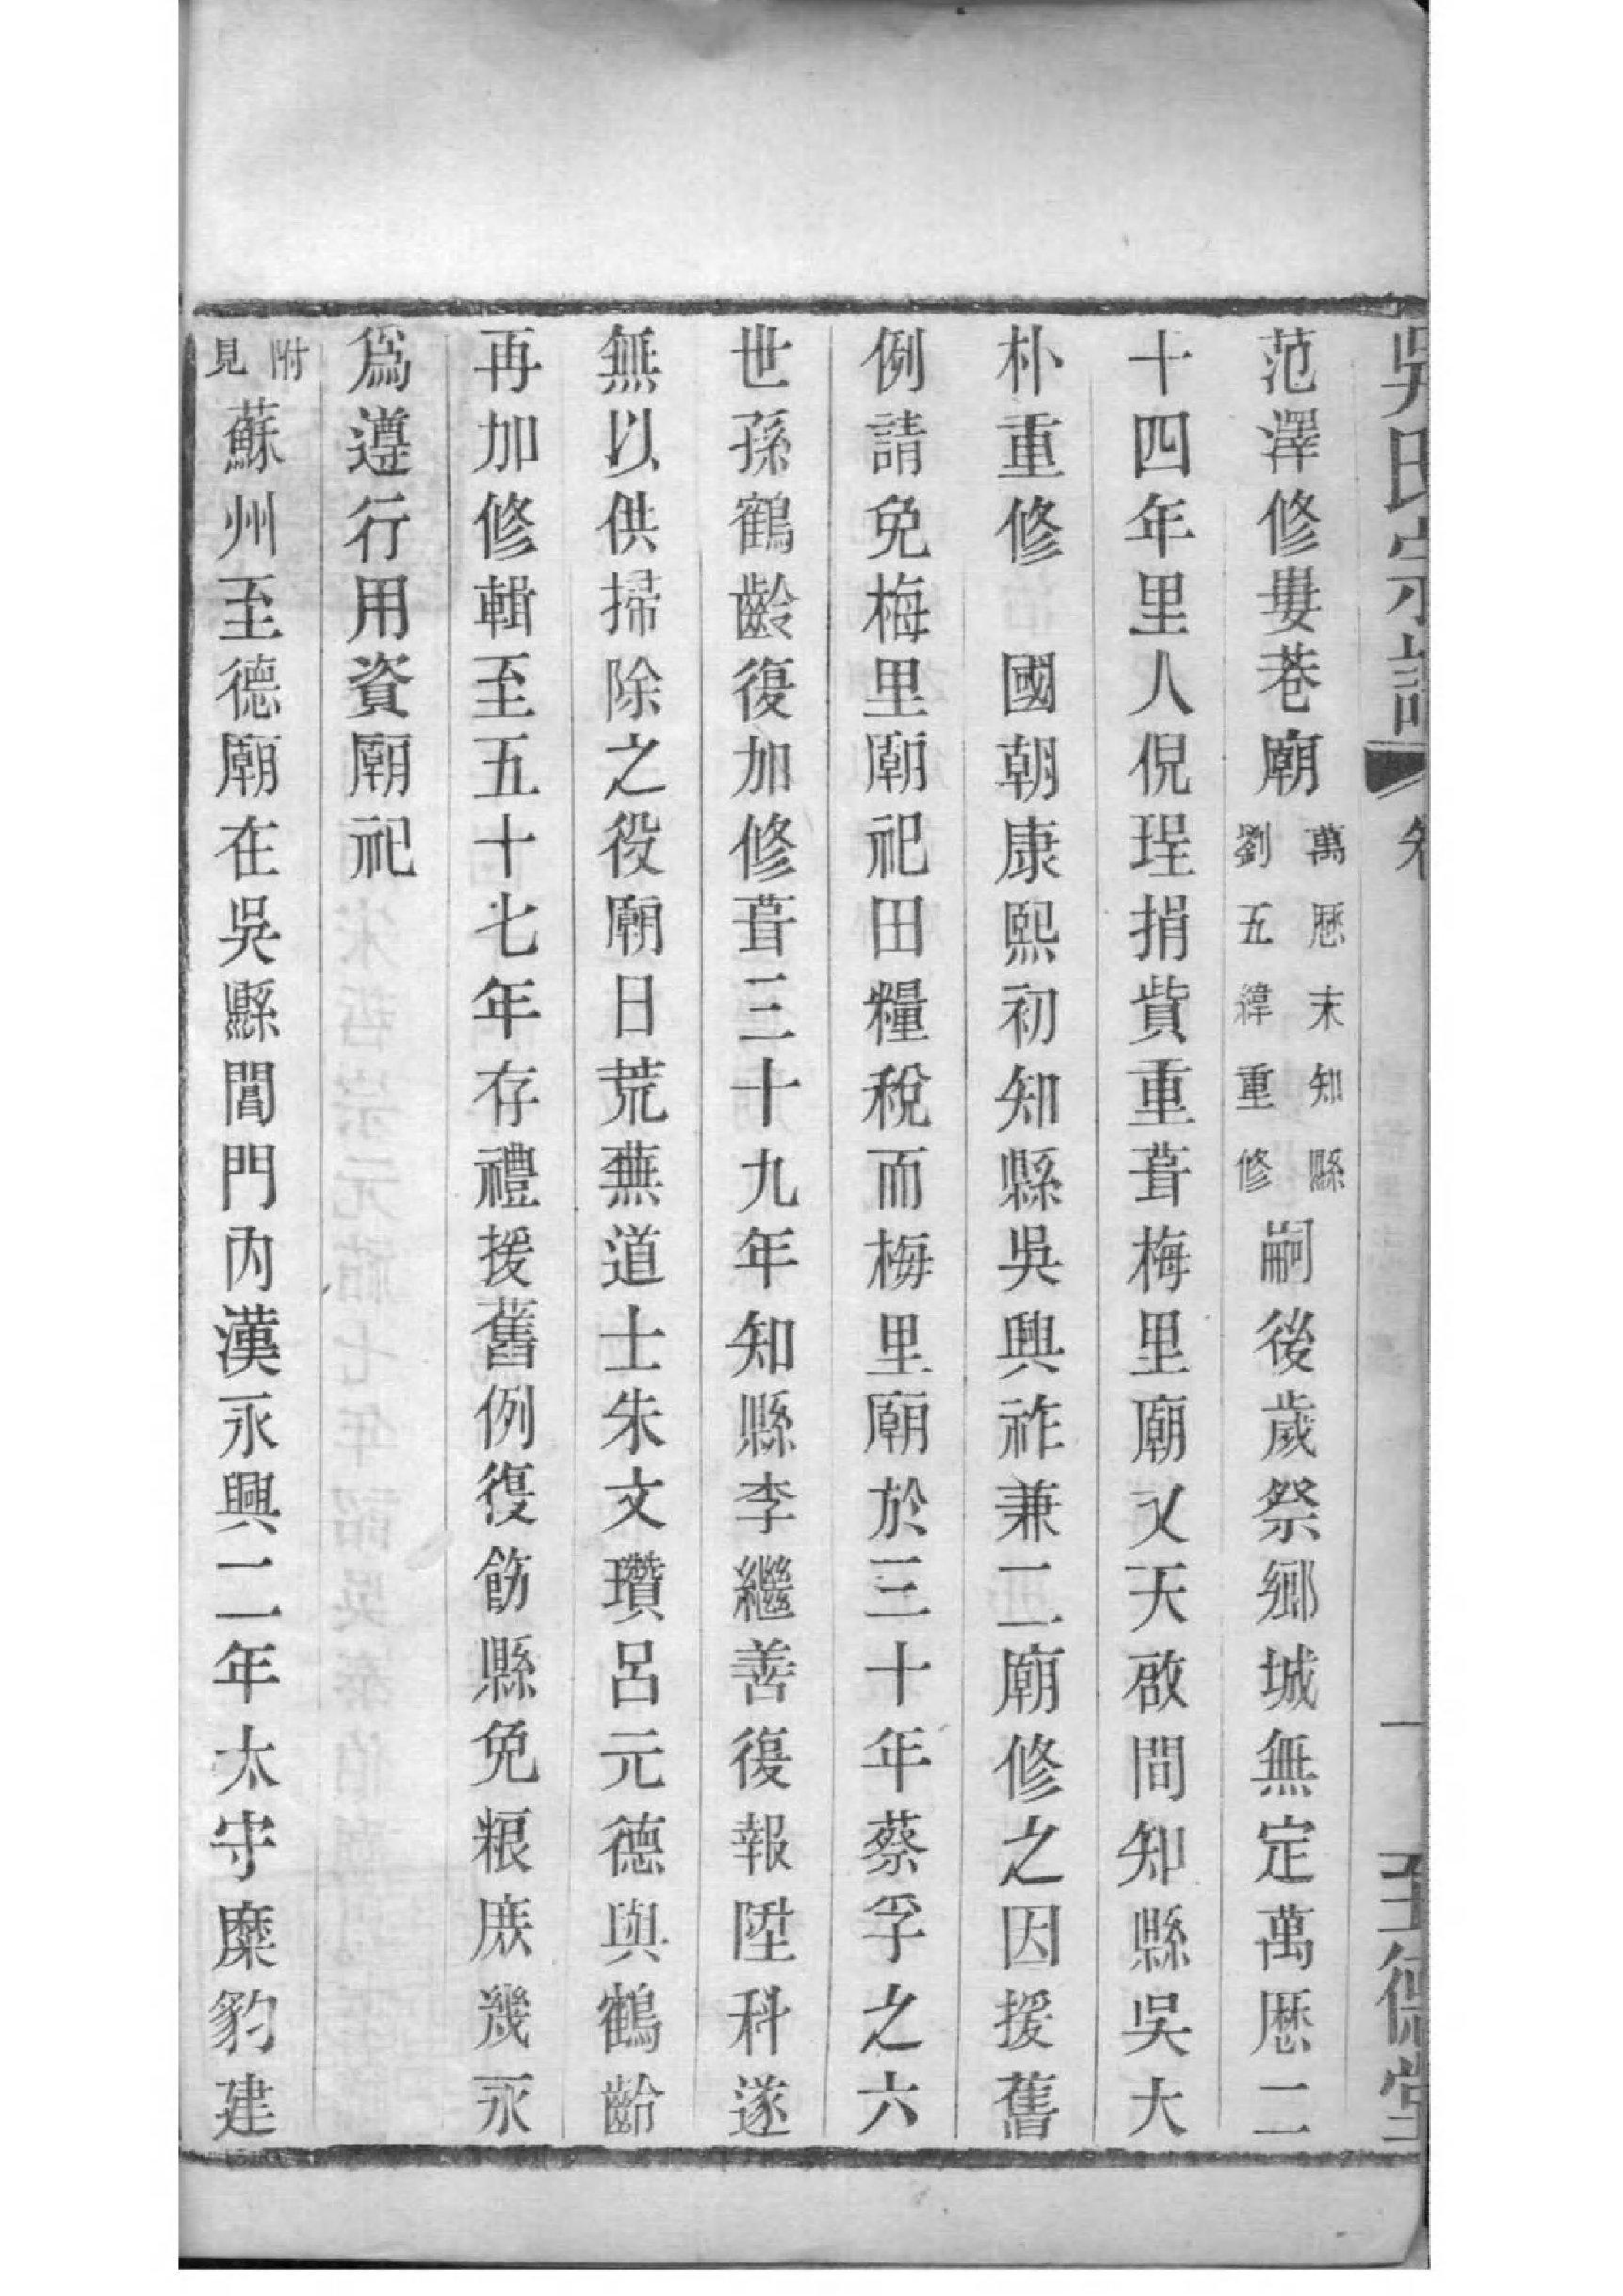 吳氏宗譜 卷 一 至德堂
范澤修婁巷廟萬厯末知縣劉五緯重修嗣後歲祭鄉城無定萬厯二
十四年里人倪珵捐貲重葺梅里廟乂天啟間知縣吳大
朴重修 國朝康熙初知縣吳興祚兼二廟修之因援舊
例請免梅里廟祀田糧稅而梅里廟於三十年蔡孚之六
世孫鶴齡復加修葺三十九年知縣李繼善復報陞科遂
無以供掃除之役廟日荒蕪道士朱文瓚呂元德與鶴齡
再加修輯至五十七年存禮援舊例復飭縣免粮庶幾永
爲遵行用資廟祀
附見蘇州至德廟在吳縣閶門內漢永興二年太守糜豹建